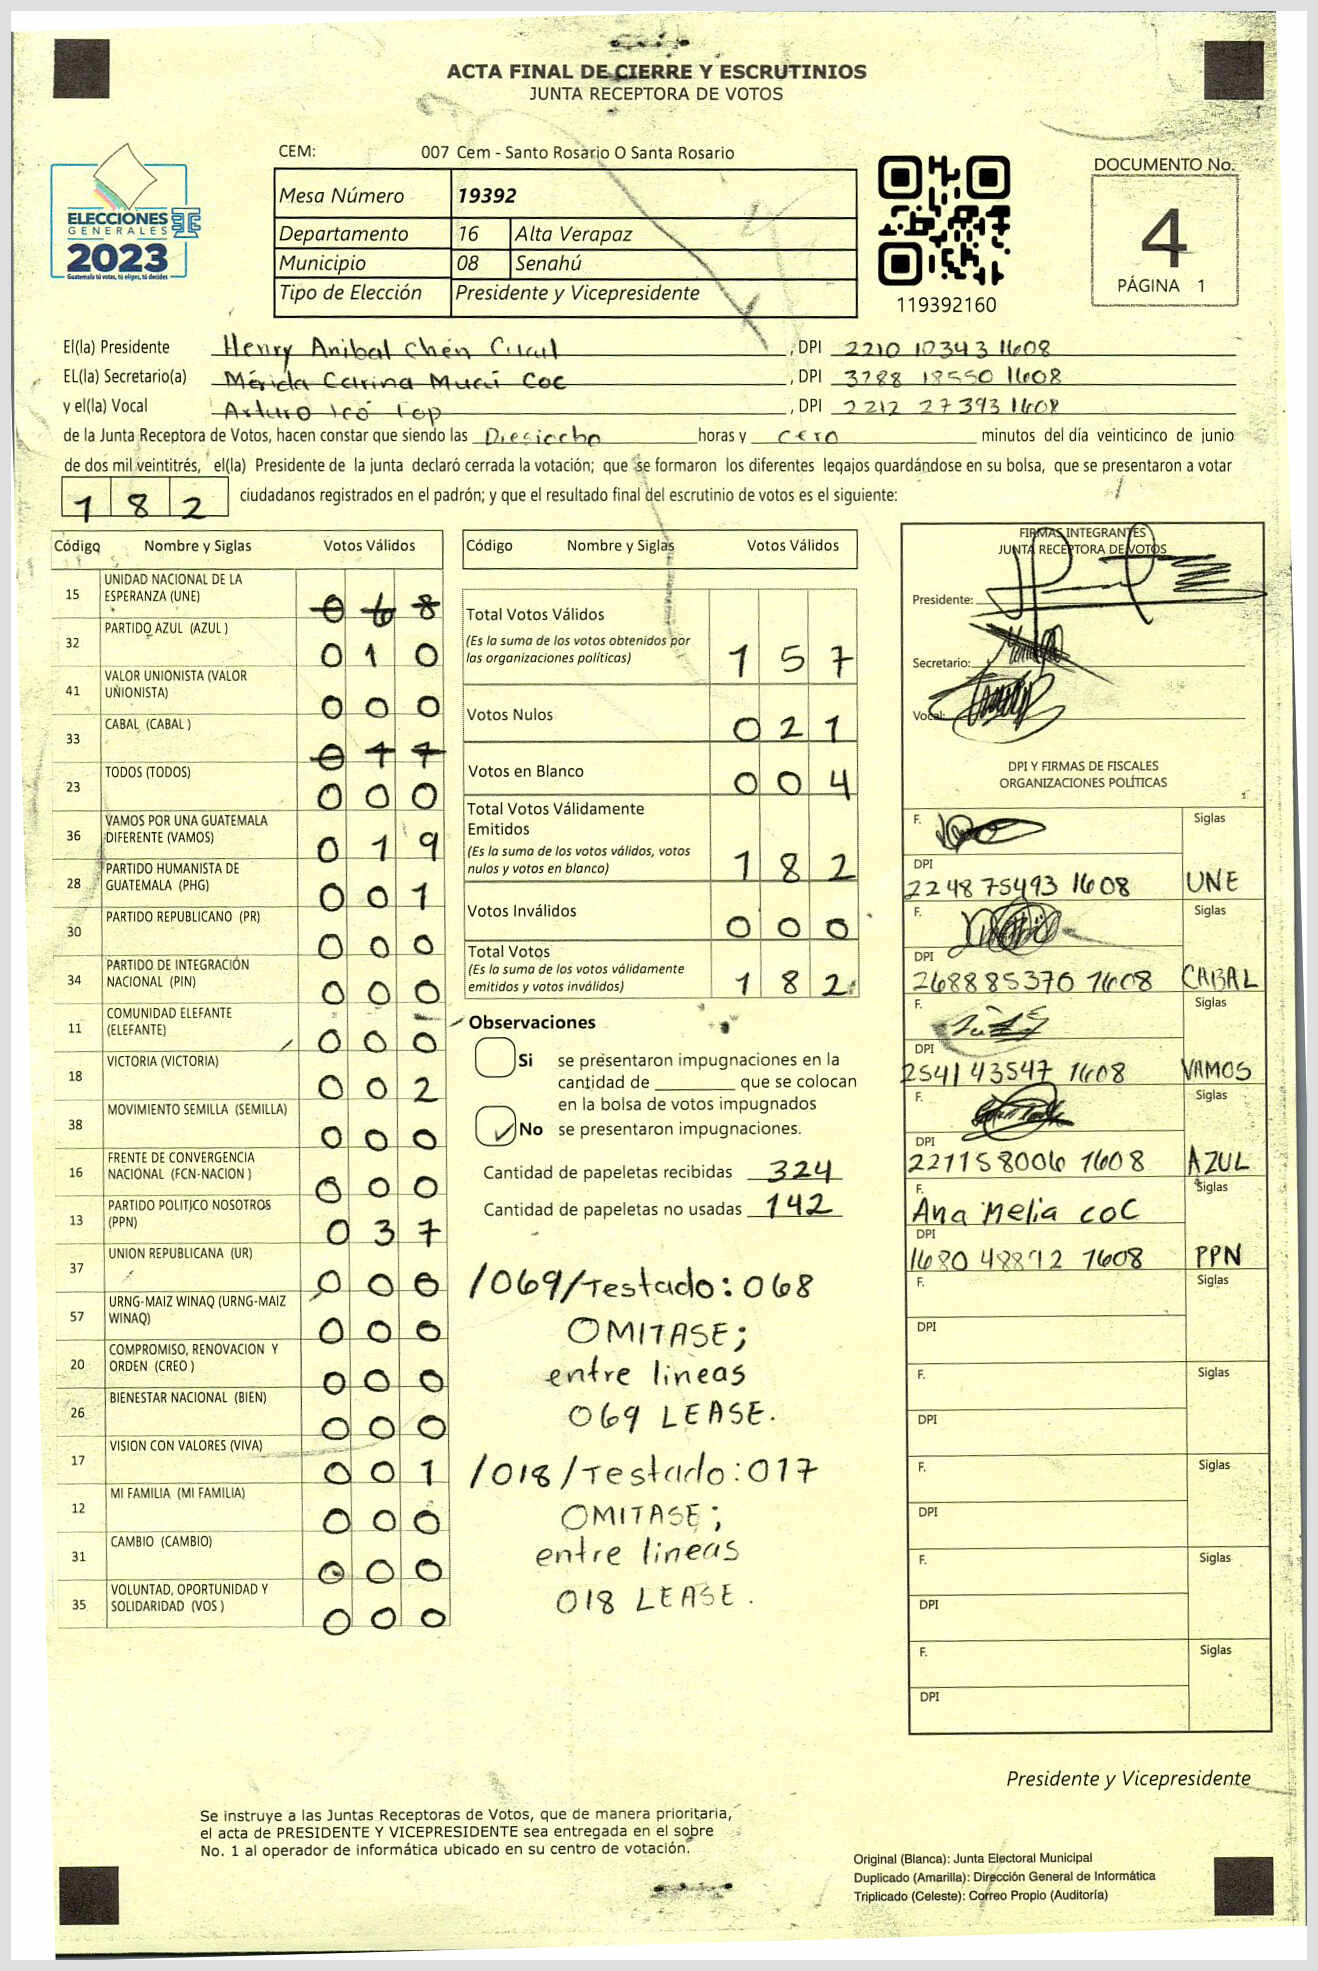 ACTA FINAL DE CIERRE Y ESCRUTINIOS
JUNTA RECEPTORA DE VOTOS
ELECCIONES
GENERALES
2023
Guatemala tú votas, tú eliges, tú decides
CEM: 007 Cem - Santo Rosario O Santa Rosario
Mesa Número 19392
Departamento 16 Alta Verapaz
Municipio 08 Senahú
Tipo de Elección Presidente y Vicepresidente
119392160
DOCUMENTO No.
4
PÁGINA 1
El(la) Presidente Henry Anibal Chén , DPI 2210 10343 1608
EL(la) Secretario(a) Mérida Carina Mucú Coc , DPI 3288 18550 1608
y el(la) Vocal Arturo Icó Top , DPI 2212 27393 1608
de la Junta Receptora de Votos, hacen constar que siendo las Diesiocho horas y cero minutos del día veinticinco de junio
de dos mil veintitrés, el(la) Presidente de la junta declaró cerrada la votación; que se formaron los diferentes legajos quardándose en su bolsa, que se presentaron a votar
182 ciudadanos registrados en el padrón; y que el resultado final del escrutinio de votos es el siguiente:
Código Nombre y Siglas Votos Válidos
15 UNIDAD NACIONAL DE LA
ESPERANZA (UNE) 068
32 PARTIDO AZUL (AZUL ) 010
41 VALOR UNIONISTA (VALOR
UNIONISTA) 000
33 CABAL (CABAL ) 017
23 TODOS (TODOS) 000
36 VAMOS POR UNA GUATEMALA
DIFERENTE (VAMOS) 019
28 PARTIDO HUMANISTA DE
GUATEMALA (PHG) 001
30 PARTIDO REPUBLICANO (PR) 000
34 PARTIDO DE INTEGRACIÓN
NACIONAL (PIN) 000
11 COMUNIDAD ELEFANTE
(ELEFANTE) 000
18 VICTORIA (VICTORIA) 002
38 MOVIMIENTO SEMILLA (SEMILLA) 000
16 FRENTE DE CONVERGENCIA
NACIONAL (FCN-NACION ) 000
13 PARTIDO POLITICO NOSOTROS
(PPN) 037
37 UNION REPUBLICANA (UR) 000
57 URNG-MAIZ WINAQ (URNG-MAIZ
WINAQ) 000
20 COMPROMISO, RENOVACION Y
ORDEN (CREO ) 000
26 BIENESTAR NACIONAL (BIEN) 000
17 VISION CON VALORES (VIVA) 001
12 MI FAMILIA (MI FAMILIA) 000
31 CAMBIO (CAMBIO) 000
35 VOLUNTAD, OPORTUNIDAD Y
SOLIDARIDAD (VOS ) 000
Código Nombre y Siglas Votos Válidos
Total Votos Válidos
(Es la suma de los votos obtenidos por
las organizaciones políticas) 157
Votos Nulos 021
Votos en Blanco 004
Total Votos Válidamente
Emitidos
(Es la suma de los votos válidos, votos
nulos y votos en blanco) 182
Votos Inválidos 000
Total Votos
(Es la suma de los votos válidamente
emitidos y votos inválidos) 182
Observaciones
Si se presentaron impugnaciones en la
cantidad de ________ que se colocan
en la bolsa de votos impugnados
No se presentaron impugnaciones.
Cantidad de papeletas recibidas 324
Cantidad de papeletas no usadas 142
/069/Testado: 068
OMITASE;
entre lineas
069 LEASE.
/018/Testado: 017
OMITASE;
entre lineas
018 LEASE.
FIRMAS INTEGRANTES
JUNTA RECEPTORA DE VOTOS
Presidente:
Secretario:
Vocal:
DPI Y FIRMAS DE FISCALES
ORGANIZACIONES POLÍTICAS
F. Siglas
DPI
2248 75493 1608 UNE
F. Siglas
DPI
2688 85370 1608 CABAL
F. Siglas
DPI
2541 43547 1608 VAMOS
F. Siglas
DPI
2211 58006 1608 AZUL
F. Siglas
Ana Melia COC
DPI
1680 48872 1608 PPN
F. Siglas
DPI
F. Siglas
DPI
F. Siglas
DPI
F. Siglas
DPI
F. Siglas
DPI
Presidente y Vicepresidente
Se instruye a las Juntas Receptoras de Votos, que de manera prioritaria,
el acta de PRESIDENTE Y VICEPRESIDENTE sea entregada en el sobre
No. 1 al operador de informática ubicado en su centro de votación.
Original (Blanca): Junta Electoral Municipal
Duplicado (Amarilla): Dirección General de Informática
Triplicado (Celeste): Correo Propio (Auditoría)